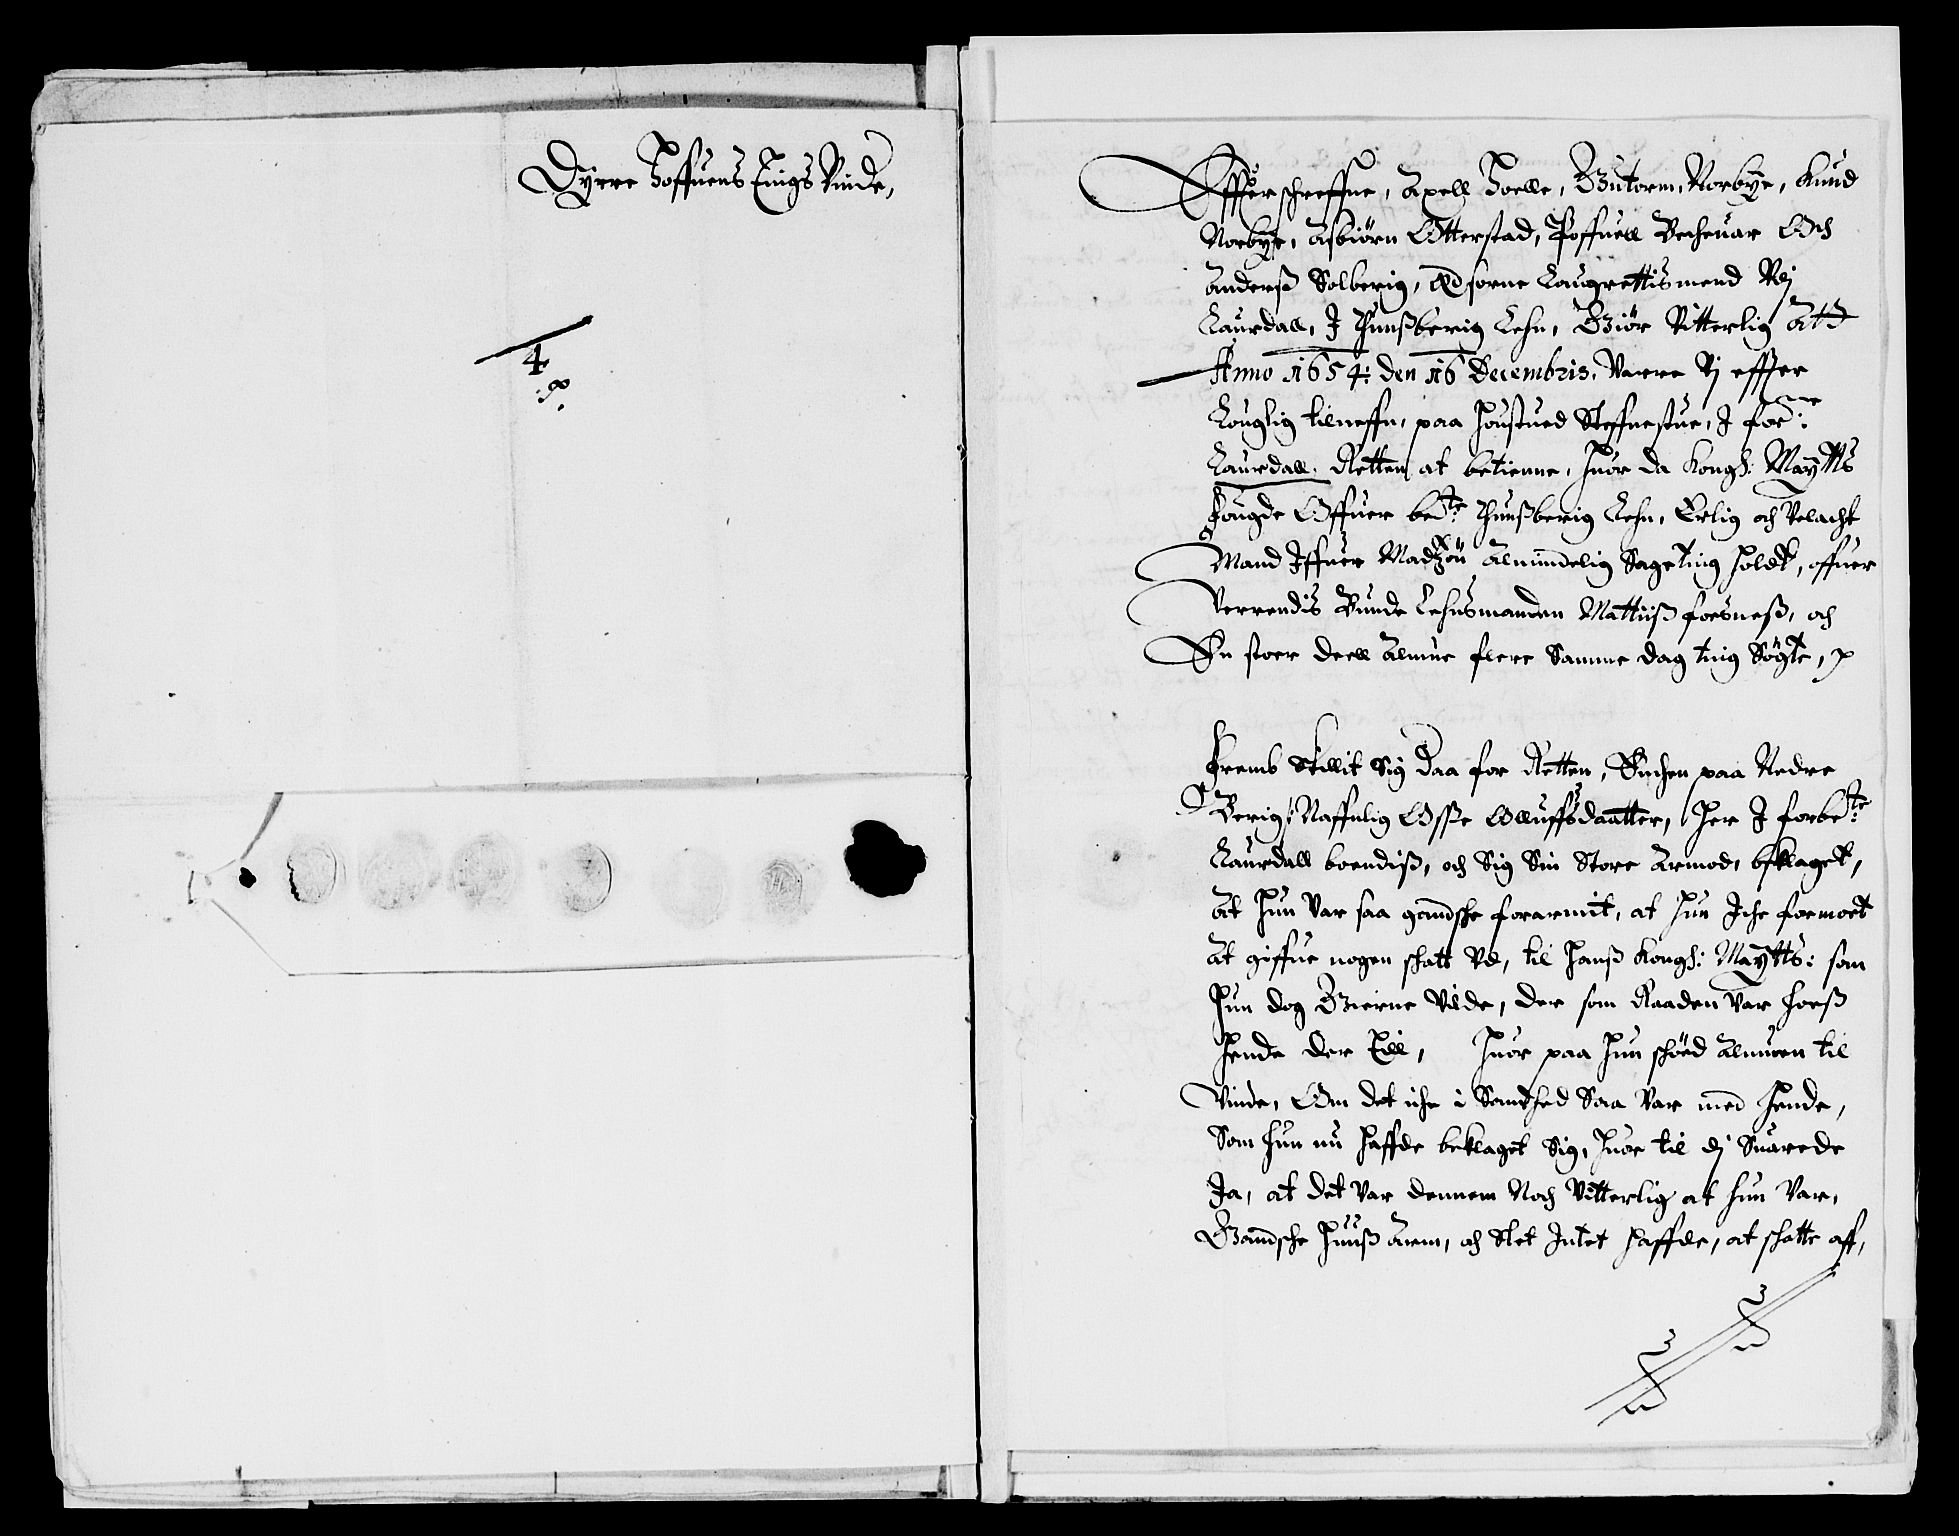 Dyrre Hoffuens Tings Vinde,
4
P.
Effterschreffne, Axell Hoelle, Guttorm Norbye, Knud
Norbye, Asbiörn Otterstad, Poffuell Becheuar Och
Anderß Solberig, Edsorne Laugrettismend Vdj
Laurdall, J Thunßberig Lehn, Giör Vitterlig Att
Anno 1654: den 16 Decembris, Varre Vj effter
Louglig tilneffn, paa Houstued Steffnestue, J forne:
Laurdall, Retten at betienne, Huor da Kongl: Maytts
Fougde Offuer bete: Thunßberig Lehn, Erlig och Velacht
Mand Jffuer Madtzön Almindelig Sageting Holdt, offuer
Verrendis Bunde Lehnsmanden Mattiiß forsneß, och
En stoer deell Almue flere Samme dag ting Sögte, p
Fremb stillit Sig Daa for Retten, Enchen paa Nedre
Berig, Naffnlig Osße Olluffsdaatter, Her J forbete:
Laurdall boendiß, och Sig Sin Store Armod, beklaget,
At Hun Var saa gandsche forarmit, at Hun Jche formoet
At giffue nogen schatt Vd, til Hanß Kongl: Maytts: som
Hun dog Gierne Vilde, der som Raaden Var hoeß
Hende der Till, Huor paa Hun schöed Almuen til
Vinde, Om det iche i Sandhed Saa Var med Hende,
Som hun nu Haffde beklaget Sig, Huor til dj Suarede
Ja, at det Var dennem Noch Vitterlig at hun Var,
Gandsche Huuß Arm, och Slet Jntet Haffde, at schatte aff,